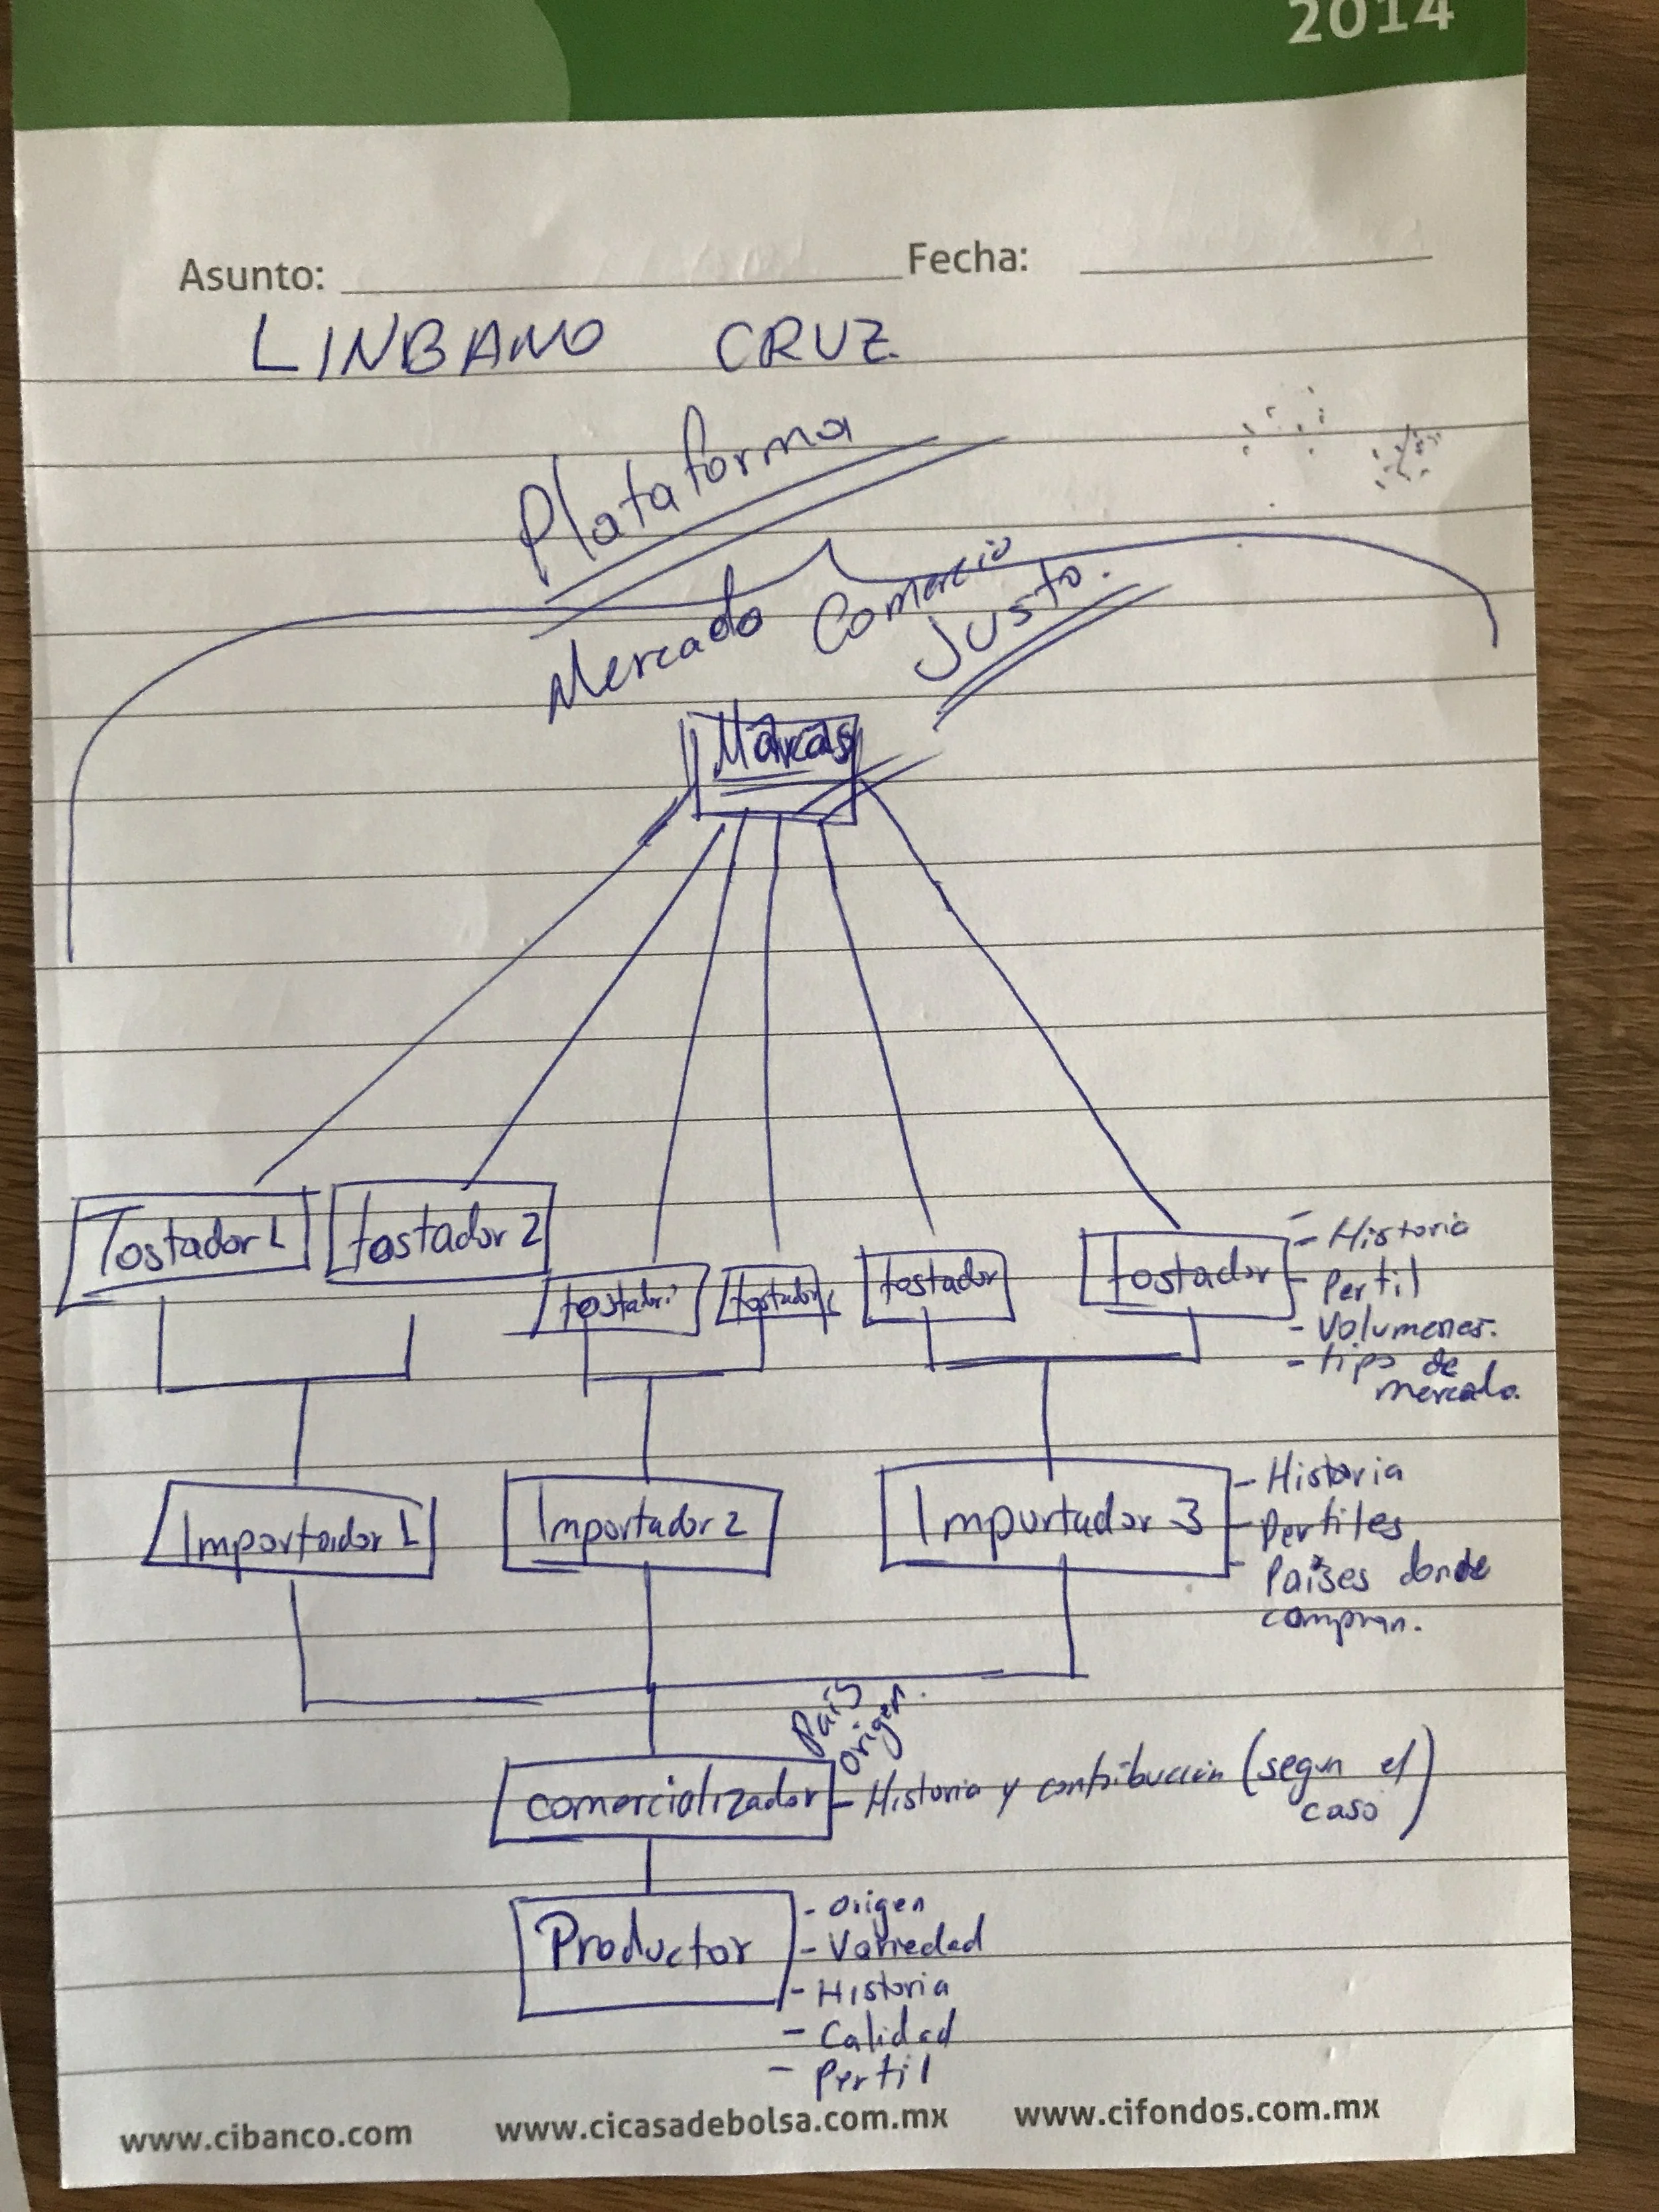 2014
Asunto: Fecha:
LINBANO CRUZ
Plataforma
Mercado Comercio
Justo.
Marcas
Tostador 1
tostador 2
tostador
tostador
tostador
tostador
- Historia
- Perfil
- Volumenes.
- tipo de
mercado.
Importador 1
Importador 2
Importador 3
- Historia
- Perfiles
- Países donde
compran.
País
origen.
comercializador
- Historia y contribución (segun el
caso)
Productor
- Origen
- Variedad
- Historia
- Calidad
- Perfil
www.cibanco.com www.cicasadebolsa.com.mx www.cifondos.com.mx